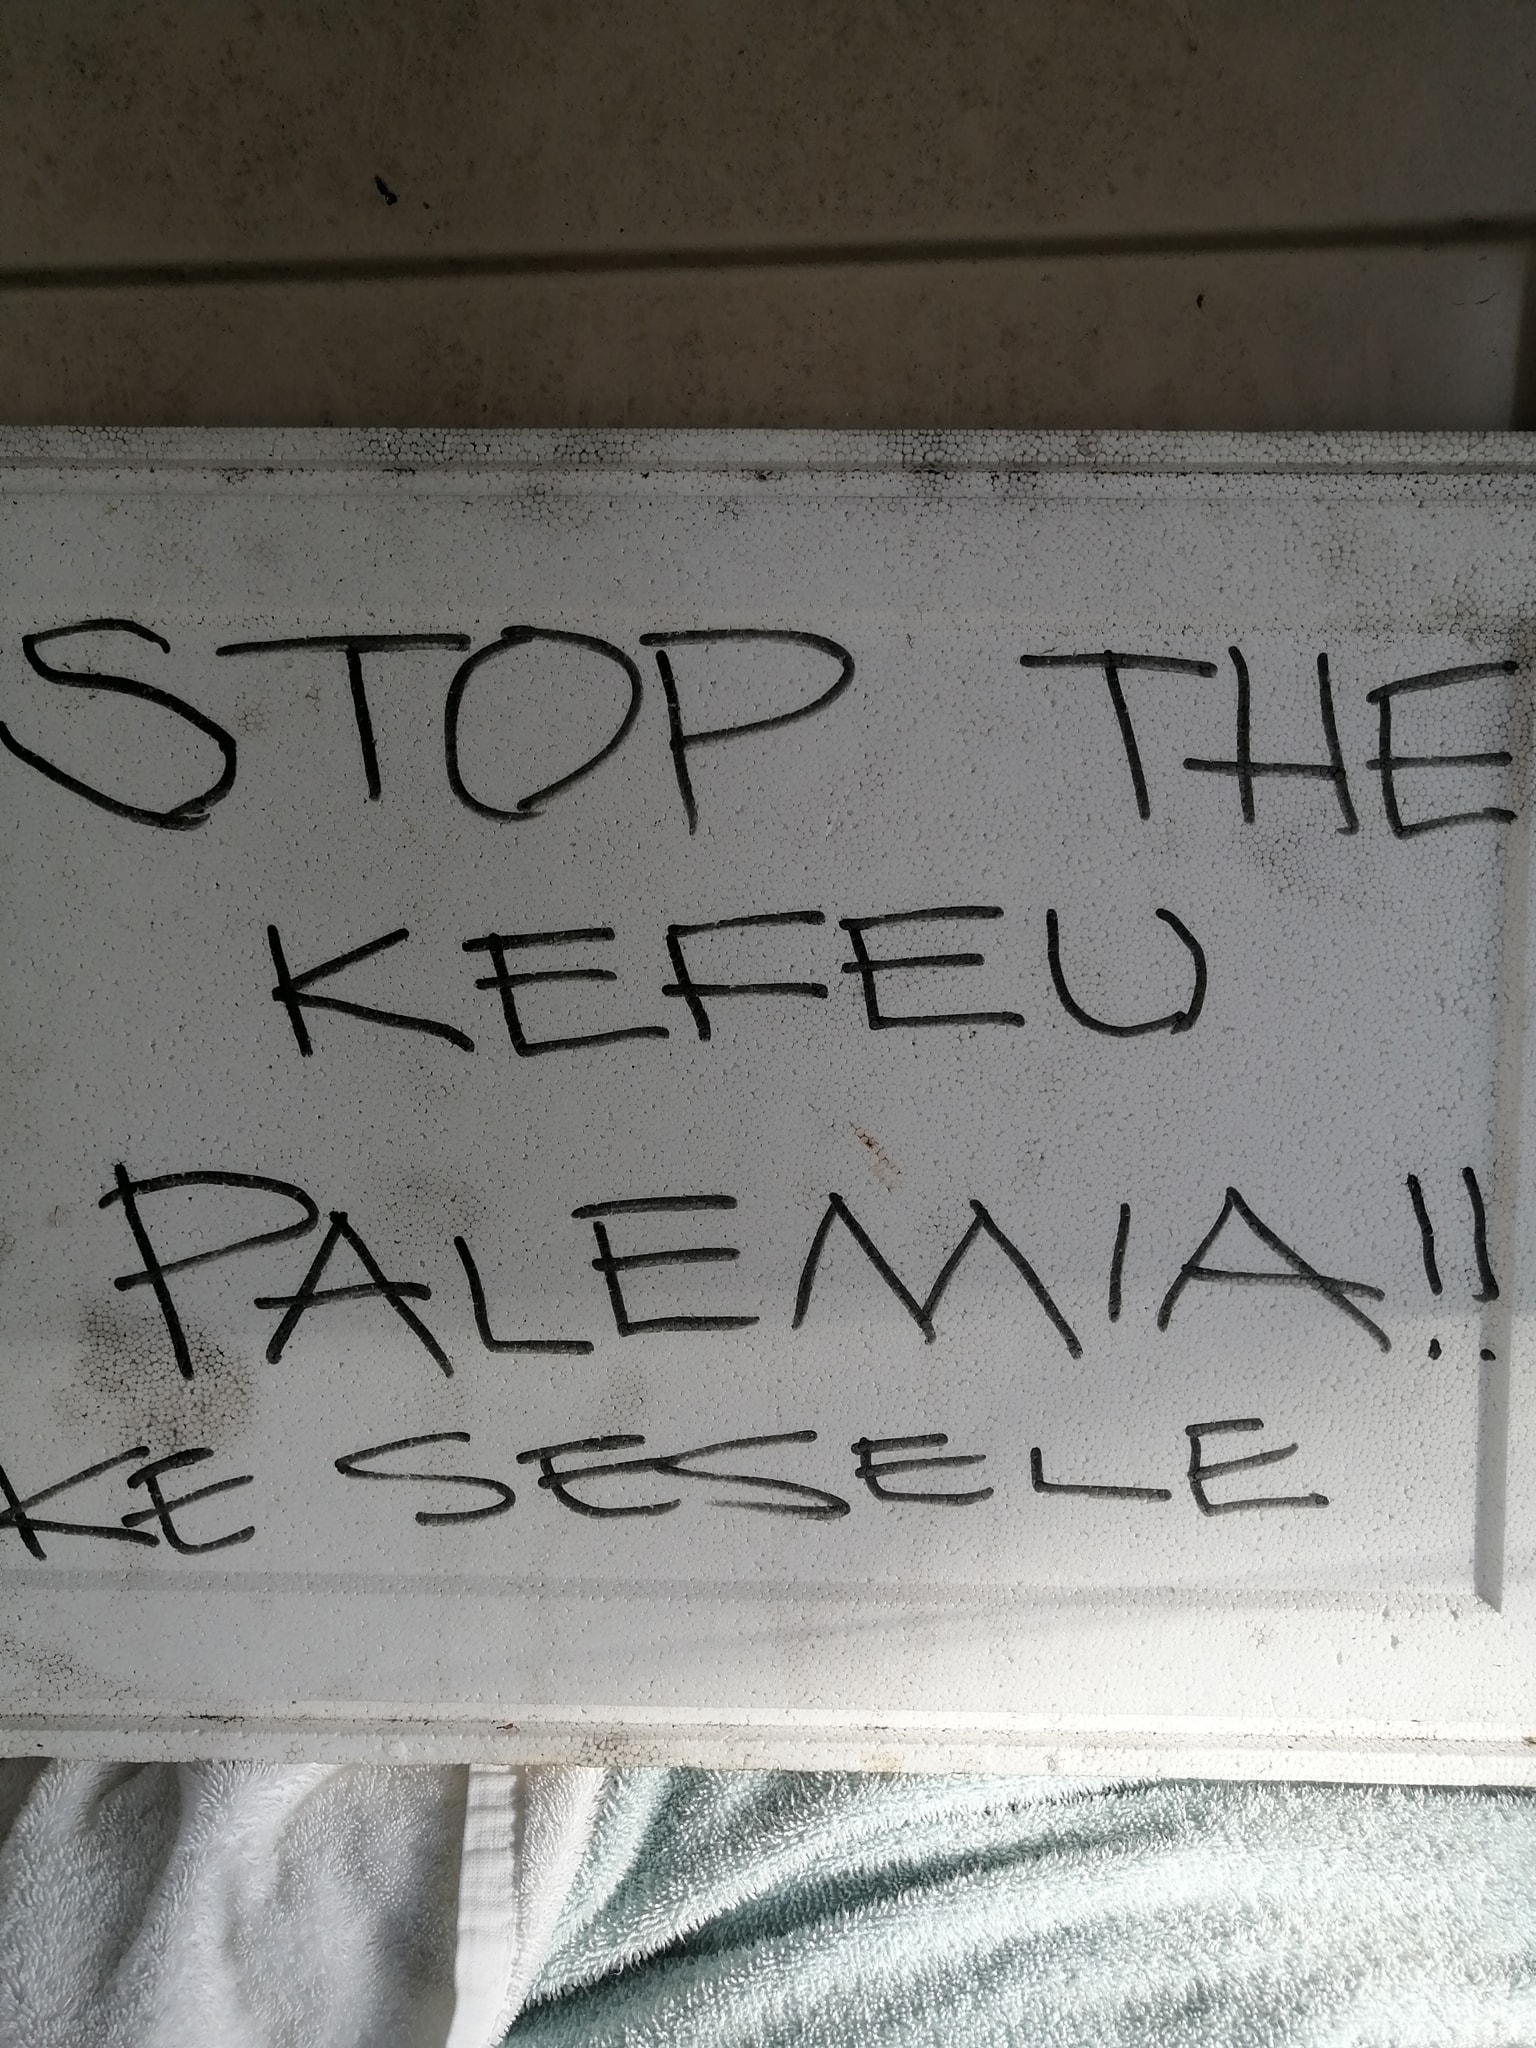 STOP THE
KEFEU
PALEMIA!!
KE SESELE